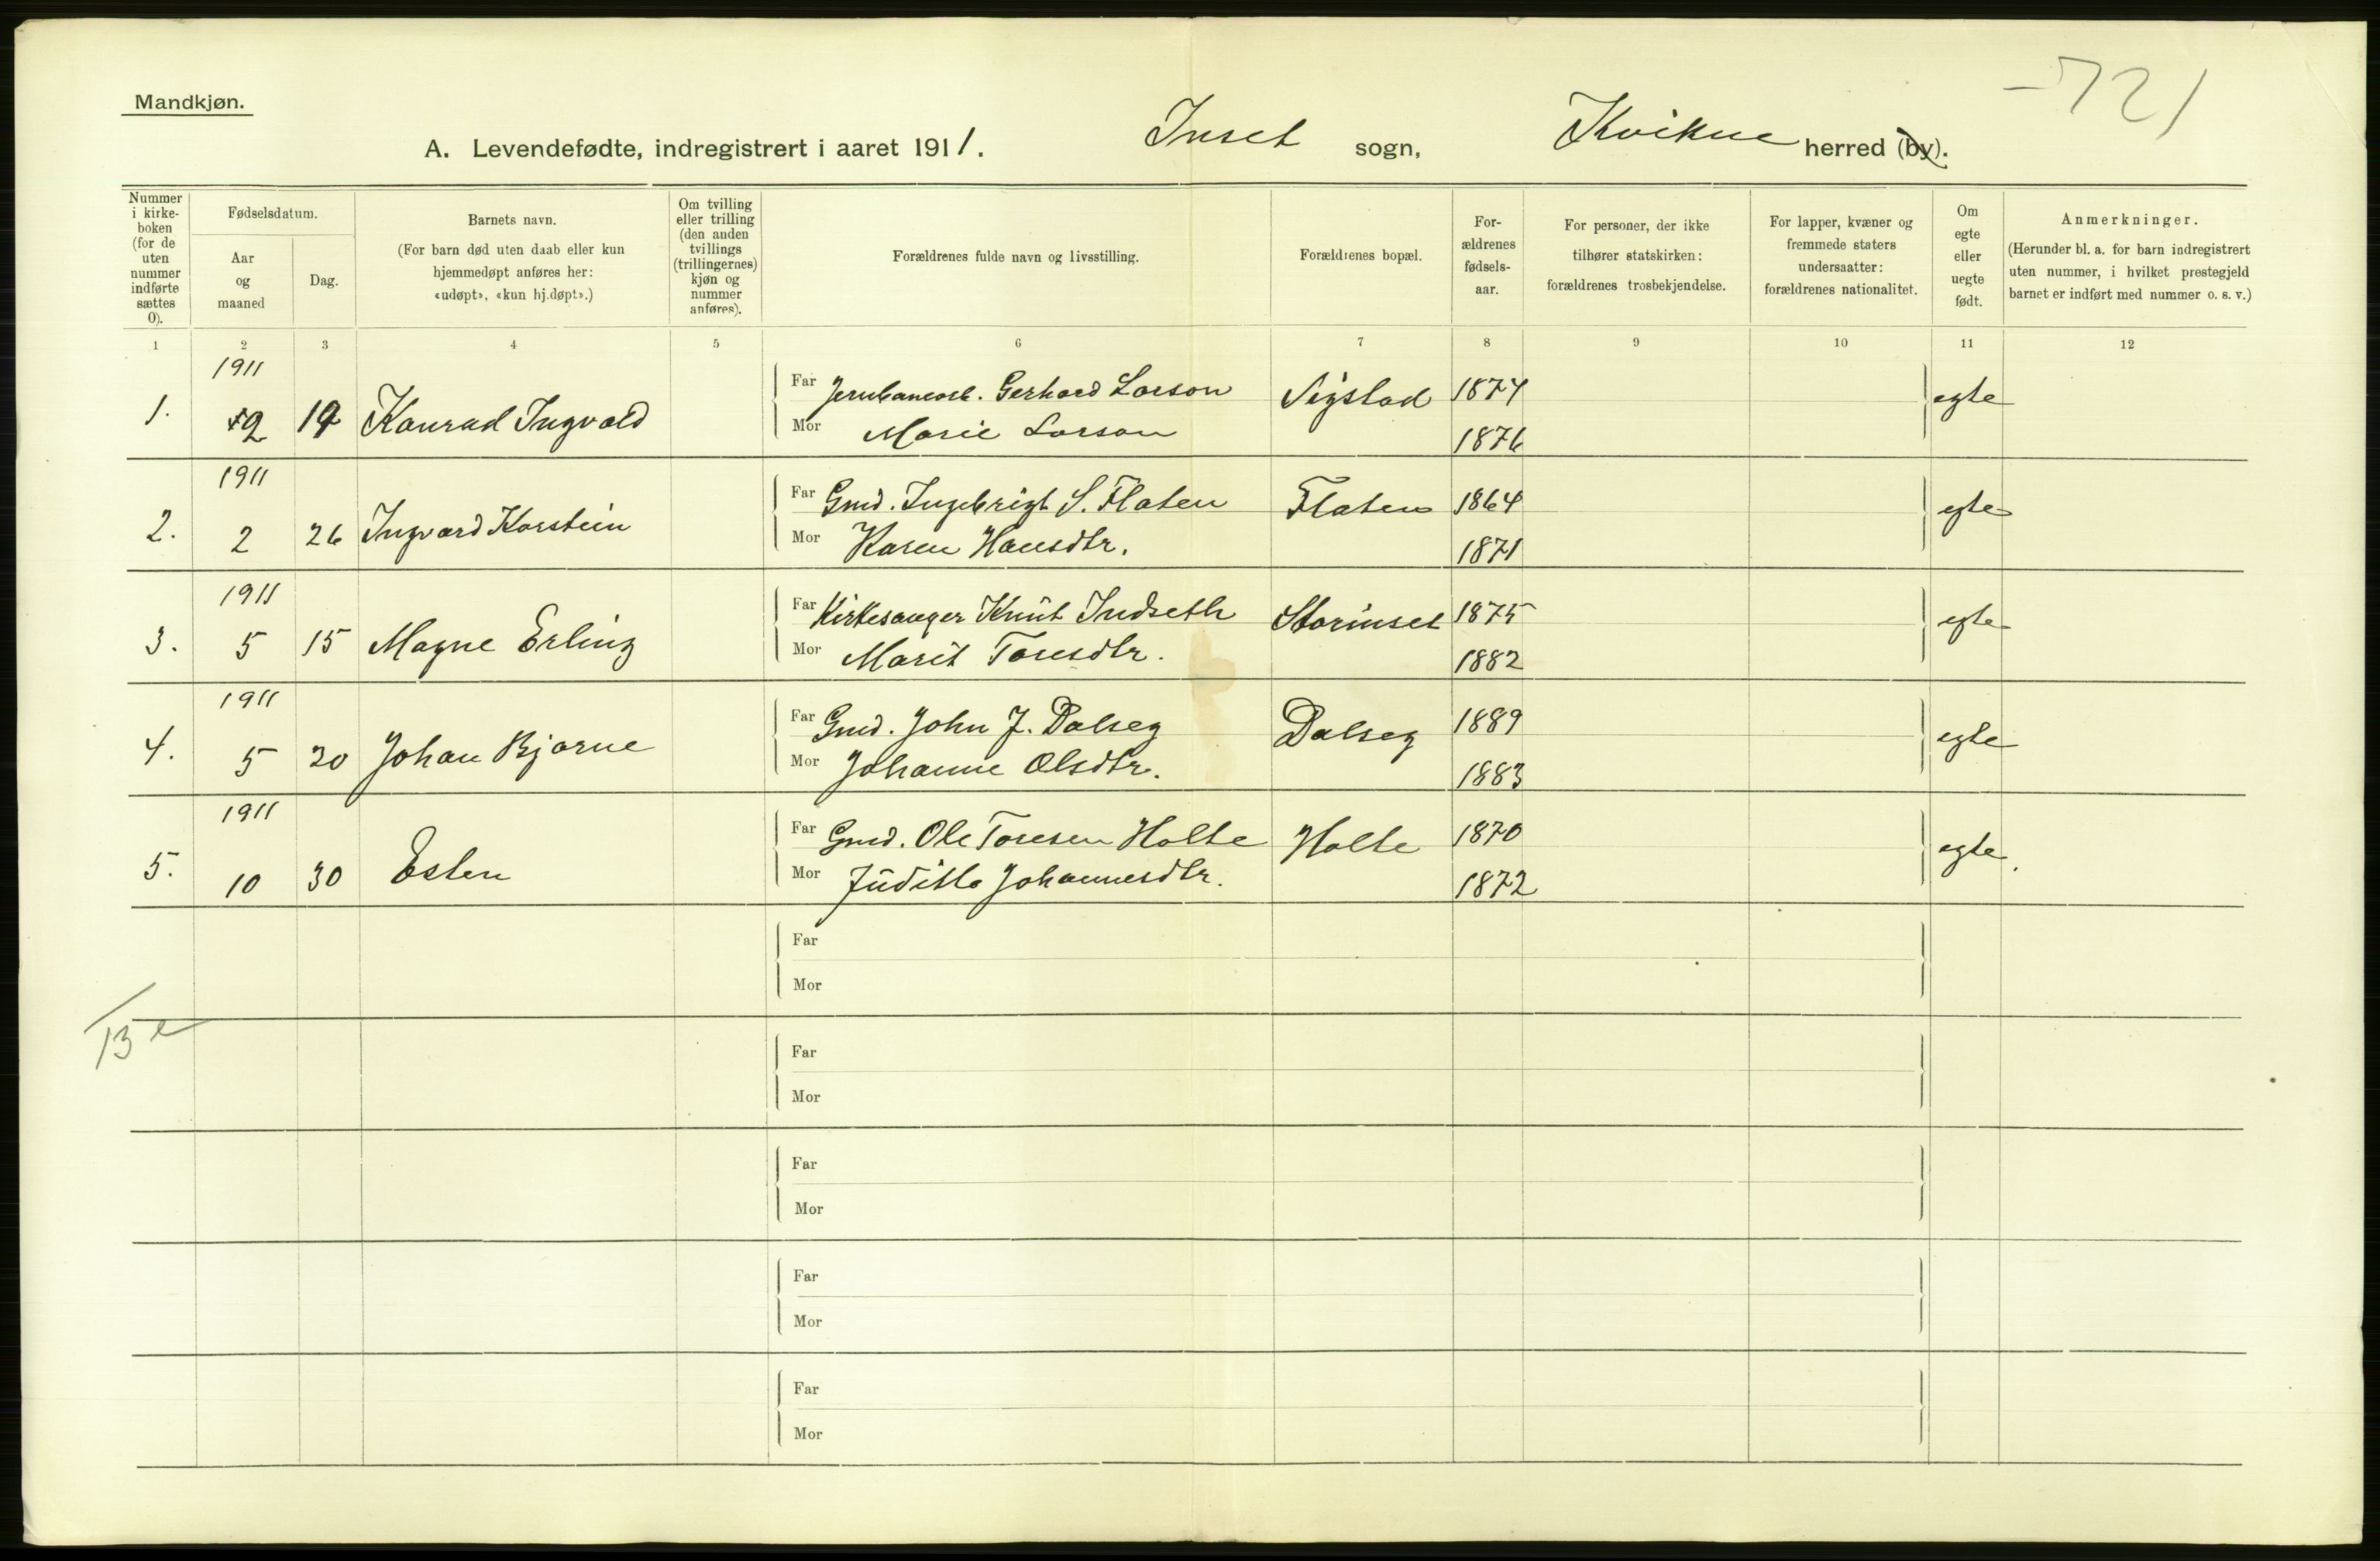 -721
Mandkjøn.
A. Levendefødte, indregistrert i aaret 1911. Inset sogn, Kvikne herred (by).
Nummer i kirke-boken (for de uten nummer indførte sættes 0).
Fødselsdatum.
Aar og maaned
Dag.
Barnets navn.
(For barn død uten daab eller kun hjemmedøpt anføres her: «udøpt», «kun hj.døpt».)
Om tvilling eller trilling (den anden tvillings (trillingernes) kjøn og nummer anføres).
Forældrenes fulde navn og livsstilling.
Forældrenes bopæl.
For-ældrenes fødsels-aar.
For personer, der ikke tilhører statskirken: forældrenes trosbekjendelse.
For lapper, kvæner og fremmede staters undersaatter: forældrenes nationalitet.
Om egte eller uegte født.
Anmerkninger.
(Herunder bl. a. for barn indregistrert uten nummer, i hvilket prestegjeld barnet er indført med nummer o. s. v.)
1 2 3 4 5 6 7 8 9 10 11 12
1911
1. 2 19 Konrad Ingvald Far Gerhard Larson 1874 egte
Mor Marie Larson 1876
1911
2. 2 26 Ingvard Karstein Far Gmd. Ingebrigt S. Flaten Flaten 1864 egte
Mor Karen Hansdtr. 1871
1911
3. 5 15 Magne Erling Far Kirkesanger Knut Indseth Storinset 1875 egte
Mor Marit Toresdtr. 1882
1911
4. 5 20 Johan Bjarne Far Gmd. John J. Dalseg Dalseg 1889 egte
Mor Johanne Olsdtr. 1883
1911
5. 10 30 Esten Far Gmd. Ole Toresen Holte Holte 1870 egte.
Mor Judith Johannesdtr. 1872
Far
Mor
13
Far
Mor
Far
Mor
Far
Mor
Far
Mor